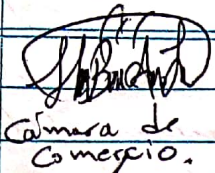 Cámara de
Comercio.